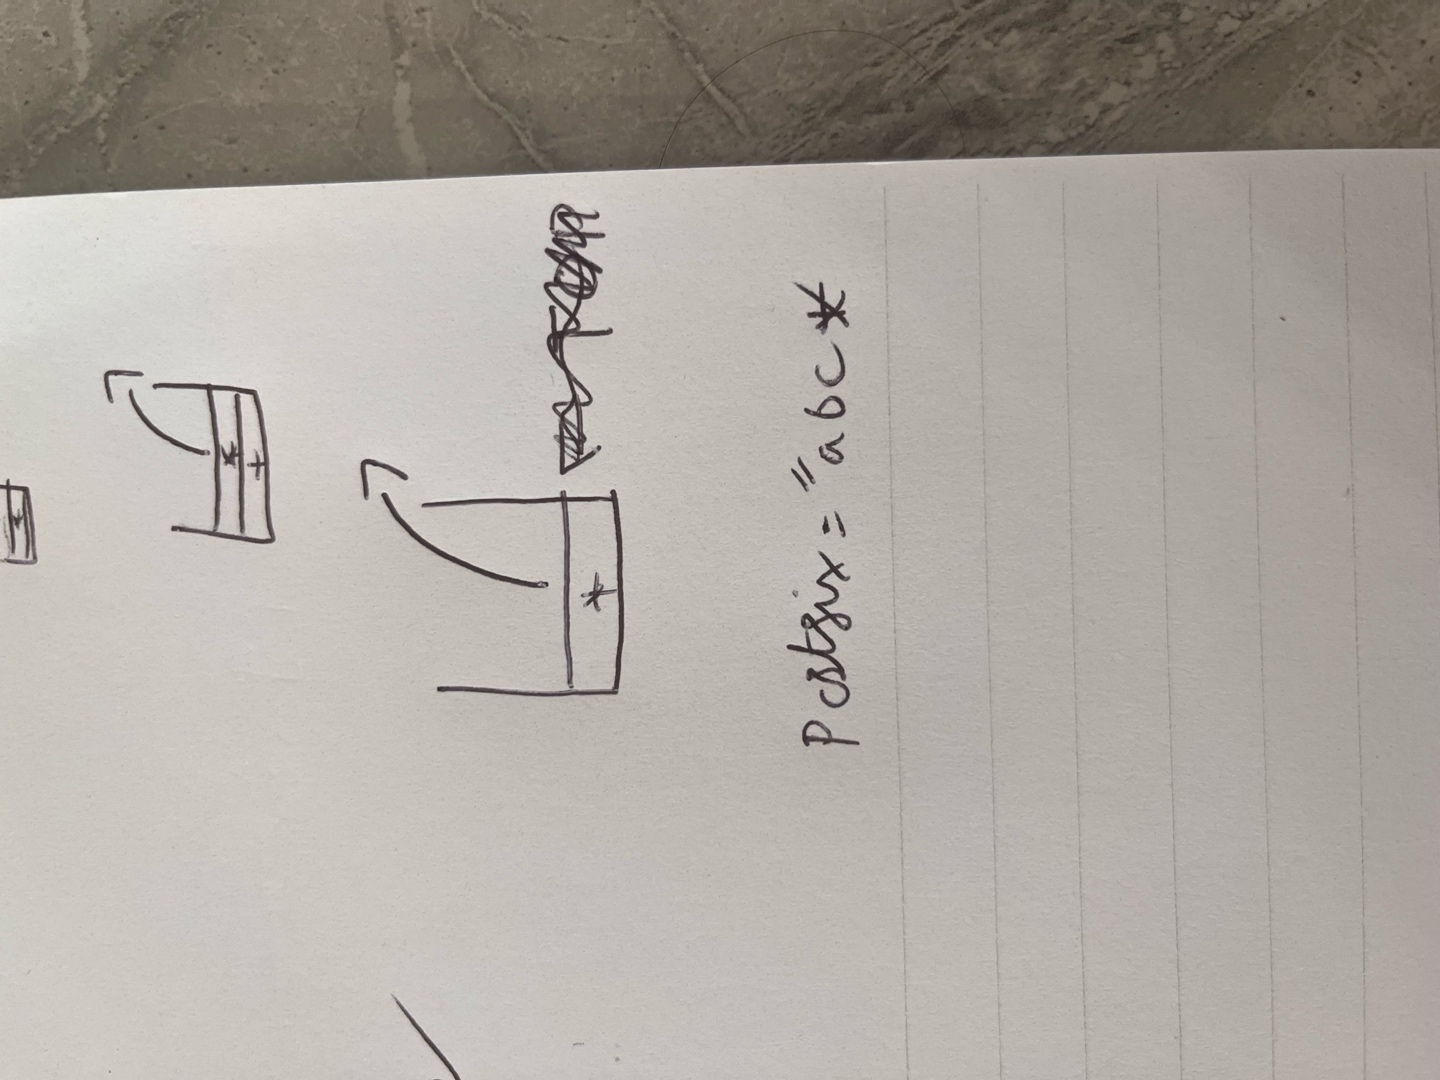 +
*
+
+
Postfix = "abc*